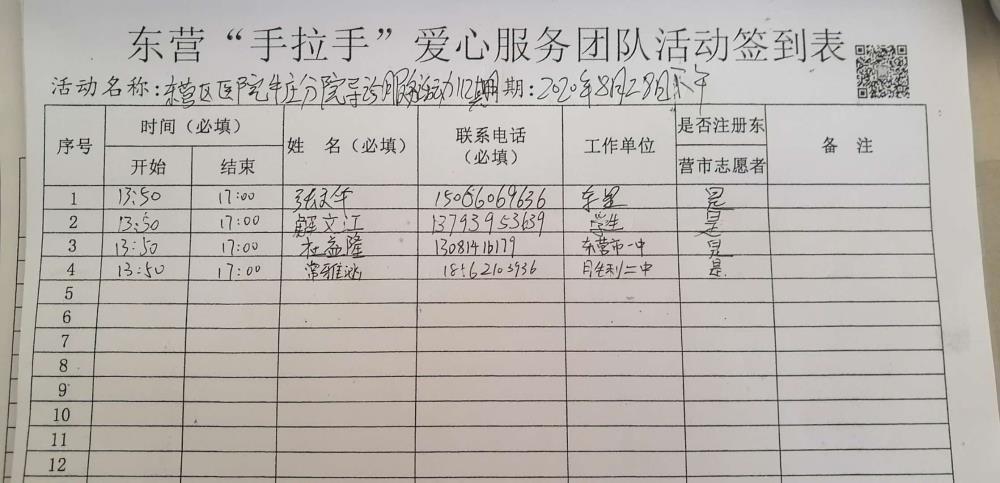 东营“手拉手”爱心服务团队活动签到表
活动名称：东营区医院牛庄分院导诊服务活动112期 日期：2020年8月28日下午
序号 时间（必填） 姓 名（必填） 联系电话（必填） 工作单位 是否注册东营市志愿者 备 注
开始 结束
1 13:50 17:00 张文华 15066069636 是
2 13:50 17:00 解文江 13793953639 学生 是
3 13:50 17:00 杜益隆 东营市一中 是
4 13:50 17:00 常雅涵 18562103936 胜利二中 是
5
6
7
8
9
10
11
12